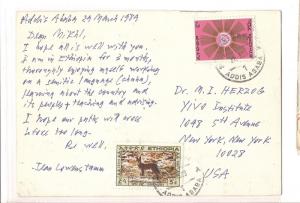 Addis Ababa 29 March 1989
Dear Mikhl,
I hope all is well with you.
I am in Ethiopia for 3 months,
thoroughly enjoying myself working
on a semitic language (chaha),
learning about the country and
its peoples & teaching and advising.
I hope our paths will cross
before too long.
Be well,
Jean Lowenstamm
Dr. M. I. HERZOG
YIVO Institute
1048 5th Avenue
New York, New York
10028
USA
ETHIOPIA
ADDIS ABABA
ETHIOPIA